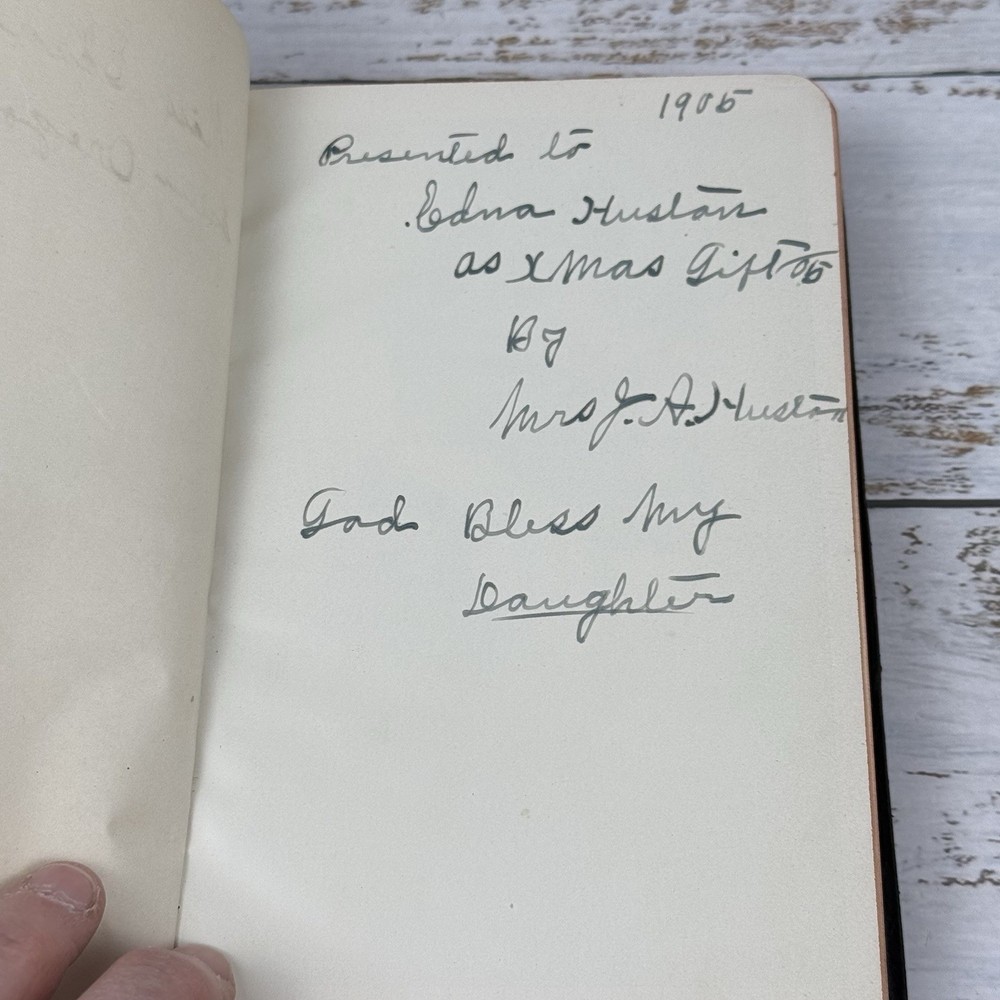 1905
Presented to
Edna Huston
as Xmas Gift 05
By
Mrs J. A. Huston
God Bless My
Daughter